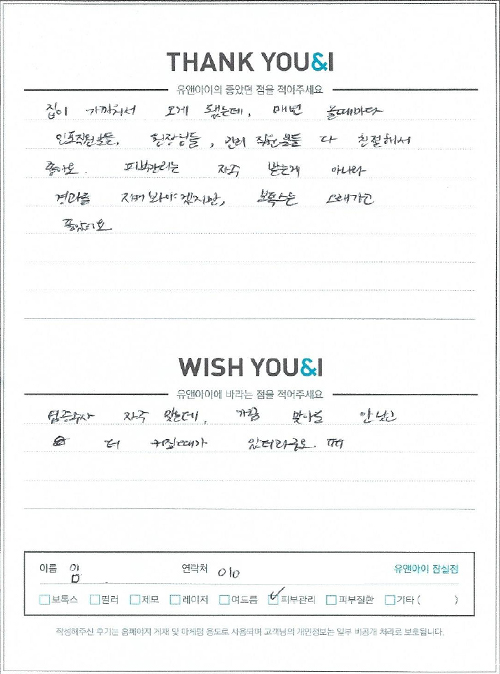 THANK YOU&I
유앤아이의 좋았던 점을 적어주세요
집이 가까워서 오게 됐는데, 매번 올때마다
인포직원분들, 원장님들, 관리 직원분들 다 친절해서
좋아요. 피부관리는 자주 받는게 아니라
결과를 지켜봐야겠지만, 보톡스는 오래가고
좋았어요
WISH YOU&I
유앤아이에 바라는 점을 적어주세요
염증주사 자주 맞는데, 가끔 맞아도 안 낫고
더 커질때가 있더라구요. ㅠㅠ
이름 임
연락처 010
유앤아이 잠실점
보톡스 필러 제모 레이저 여드름 피부관리 피부질환 기타 ( )
작성해주신 후기는 홈페이지 게재 및 마케팅 용도로 사용되며 고객님의 개인정보는 일부 비공개 처리로 보호됩니다.